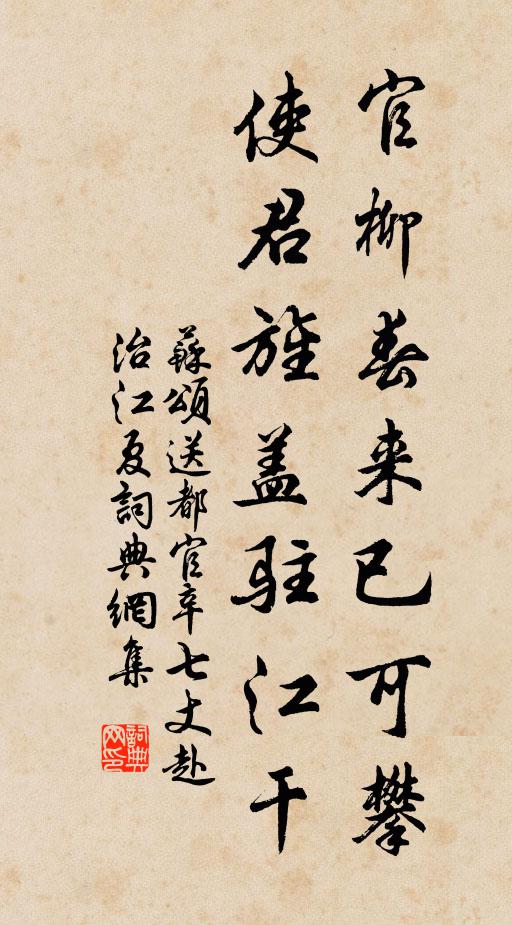 官柳春来已可攀
使君旌盖駐江干
蘇頌送都官辛七丈赴
治江夏詞典網集
詞典网印